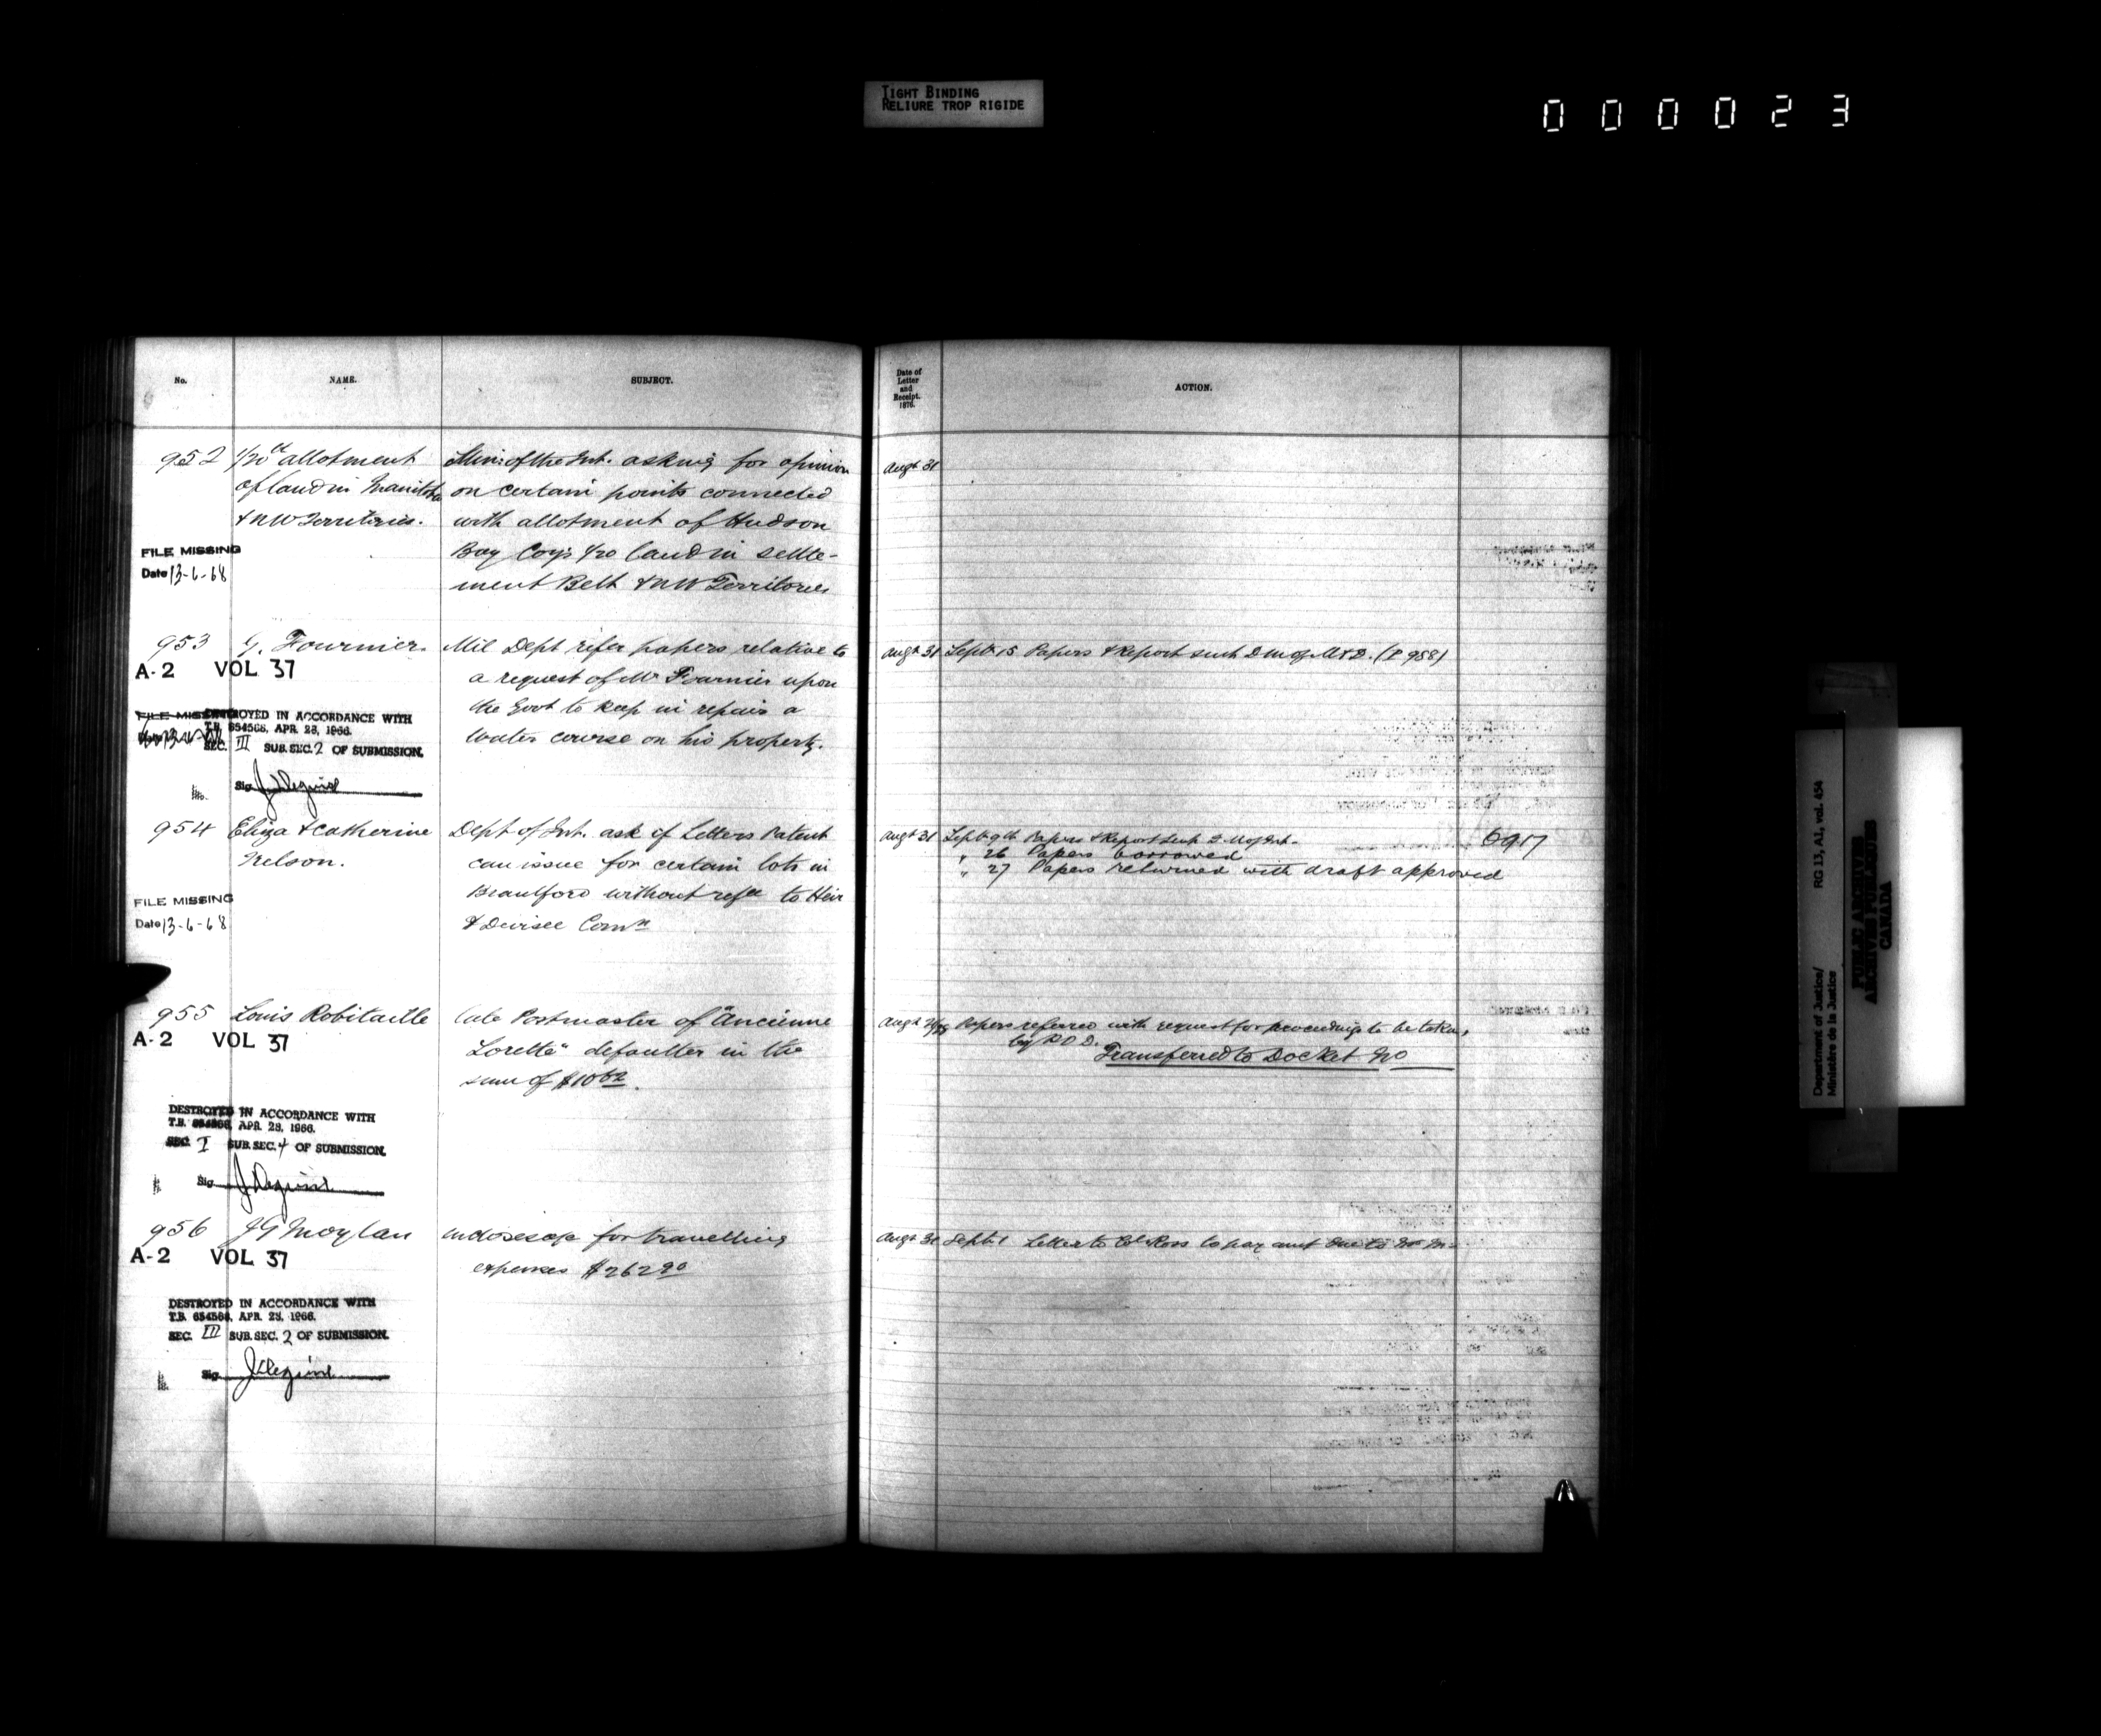 TIGHT BINDING
RELIURE TROP RIGIDE
000023
No. NAME. SUBJECT.
Date of
Letter
and
Receipt.
1876.
ACTION.
952 1/20th allotment
of land in Manitoba
& N W Territories.
FILE MISSING
Date 13-6-68
Min: of the Int. asking for opinion
on certain points connected
with allotment of Hudson
Bay Coy's 1/20 land in settle-
ment Belt & N W Territories
Augt 31
953 G. Fournier.
A-2 VOL 37
FILE MISSING
DESTROYED IN ACCORDANCE WITH
T.B. 654568, APR. 28, 1966.
SEC. III SUB. SEC. 2 OF SUBMISSION.
Sig
Mil Dept refer papers relative to
a request of Mr Fournier upon
the Govt to keep in repair a
water course on his property.
Augt 31 Septr 15 Papers & Report sent D M of M & D. (P 988)
954 Eliza & Catherine
Nelson.
FILE MISSING
Date 13-6-68
Dept of Int. ask if Letters Patent
can issue for certain lots in
Brantford without refce to Heir
& Devisee Comn
Augt 31 Septr 9th Papers & Report sent D. M of Int.
" 26 Papers borrowed
" 27 Papers returned with draft approved
6917
955 Louis Robitaille
A-2 VOL 37
late Postmaster of "Ancienne
Lorette" defaulter in the
sum of
DESTROYED IN ACCORDANCE WITH
T.B. 654568, APR. 28, 1966.
SEC. I SUB. SEC. 4 OF SUBMISSION.
Sig
Augt Papers referred with request for proceedings to be taken,
by P O D.
Transferred to Docket No
956 J G Moylan
A-2 VOL 37
encloses a/c for travelling
expenses $26290
DESTROYED IN ACCORDANCE WITH
T.B. 654568, APR. 28, 1966.
SEC. III SUB. SEC. 2 OF SUBMISSION.
Sig
Augt 31 Septr 1 Letter to Col Ross to pay amt due to Mr M
Department of Justice/
Ministère de la Justice
RG 13, A1, vol. 454
PUBLIC ARCHIVES
ARCHIVES PUBLIQUES
CANADA